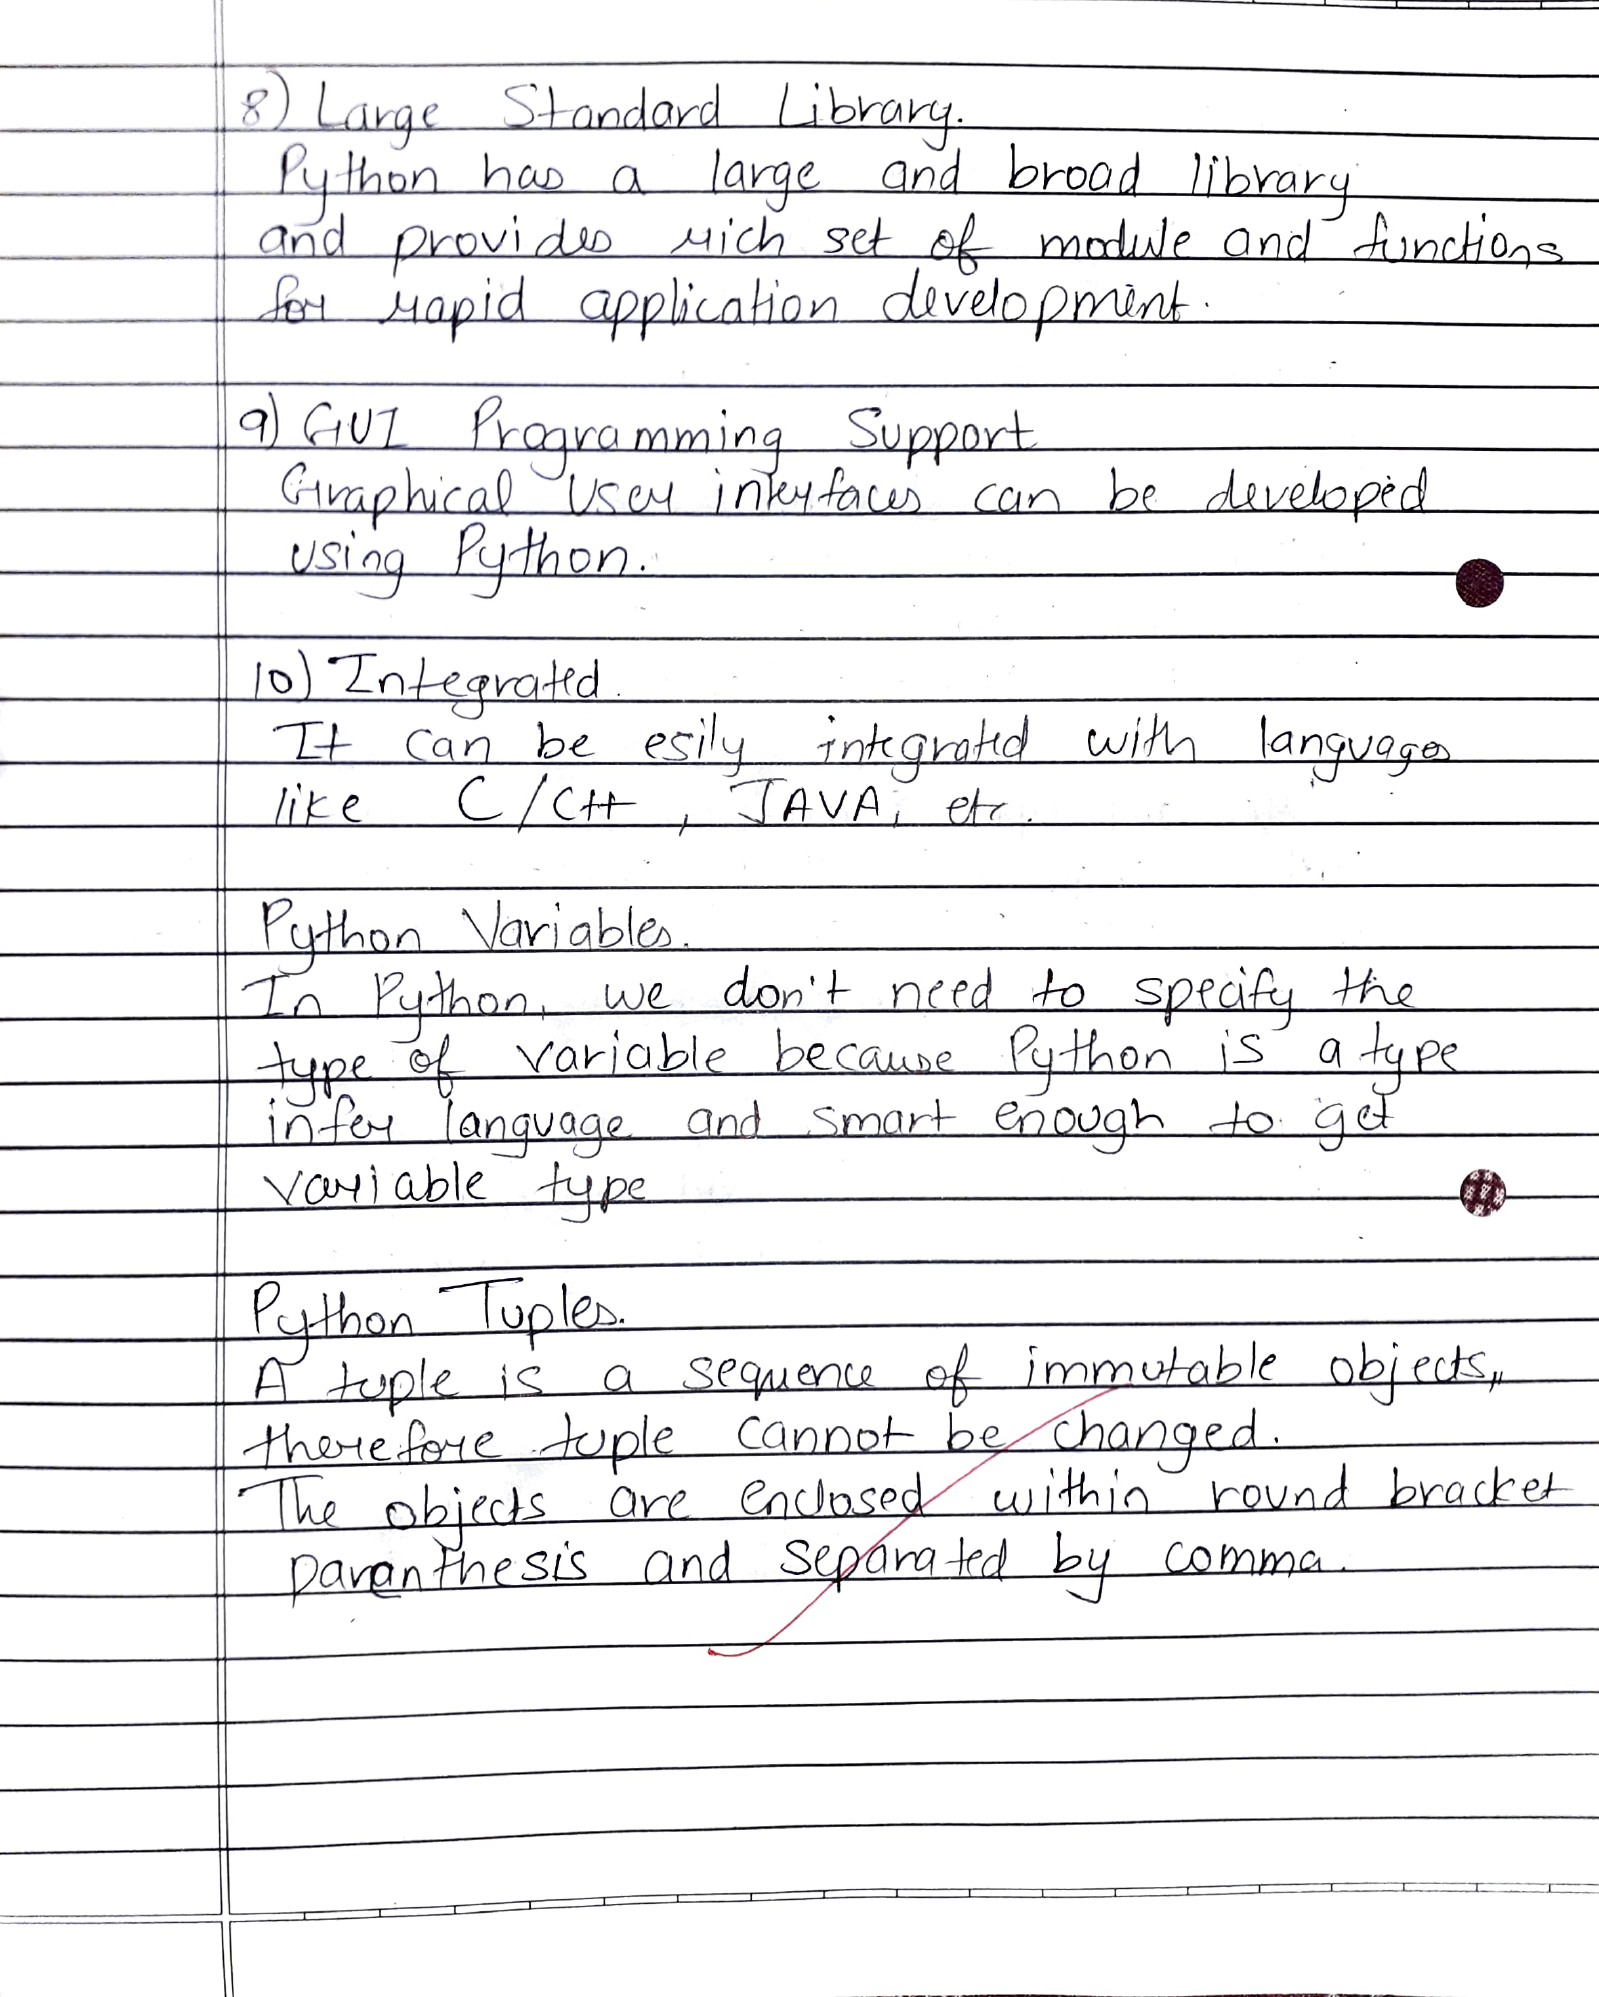 8) Large Standard Library.
Python has a large and broad library
and provides rich set of module and functions
for rapid application development.
9) GUI Programming Support
Graphical User interfaces can be developed
using Python.
10) Integrated.
It can be esily integrated with languages
like C/C++, JAVA, etc.
Python Variables.
In Python, we don't need to specify the
type of variable because Python is a type
infer language and smart enough to get
variable type
Python Tuples.
A tuple is a sequence of immutable objects,,
therefore tuple cannot be changed.
The objects are enclosed within round bracket
paranthesis and separated by comma.